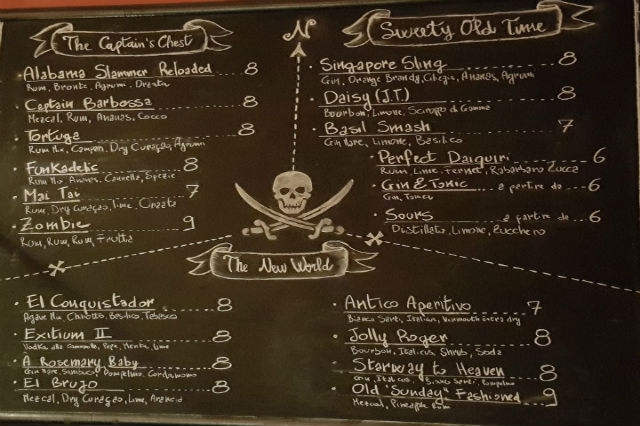 The Captain's Chest
Alabama Slammer Reloaded 8
Rum, Bronte, Agrumi, Orzata
Captain Barbossa 8
Mezcal, Rum, Ananas, Cocco
Tortuga 8
Rum Hu, Campari, Dry Curaçao, Agrumi
Funkadelic 8
Rum Hu, Cannella, Spezie
Mai Tai 7
Rum, Dry Curaçao, Lime, Orzata
Zombie 9
Rum, Rum, Rum, Frutta
N
Sweety Old Time
Singapore Sling 8
Gin, Orange Brandy, Ciliegia, Ananas, Agrumi
Daisy (J.T) 8
Bourbon, Limone, Sciroppo di Gomma
Basil Smash 7
Gin Mare, Limone, Basilico
Perfect Daiquiri 6
Rum, Lime, Fernet, Rabarbaro Zucca
Gin & Tonic a partire da 6
Gin, Tonica
Sours a partire da 6
Distillato, Limone, Zucchero
The New World
El Conquistador 8
Agave Hu, Chinotto, Basilico, Tabasco
Exitium II 8
Vodka alla Camomilla, Pepe, Menta, Lime
A Rosemary Baby 8
Gin Mare, Sambuco, Pompelmo, Cardamomo
El Brujo 8
Mezcal, Dry Curaçao, Lime, Arancia
Antico Aperitivo 7
Bianco Sarti, Italicus, Vermouth extra dry
Jolly Roger 8
Bourbon, Italicus, Shrub, Soda
Starway to Heaven 8
Gin, Italicus, Bianco Sarti, Pompelmo
Old "Sunday" Fashioned 9
Mezcal, Pineapple Rum